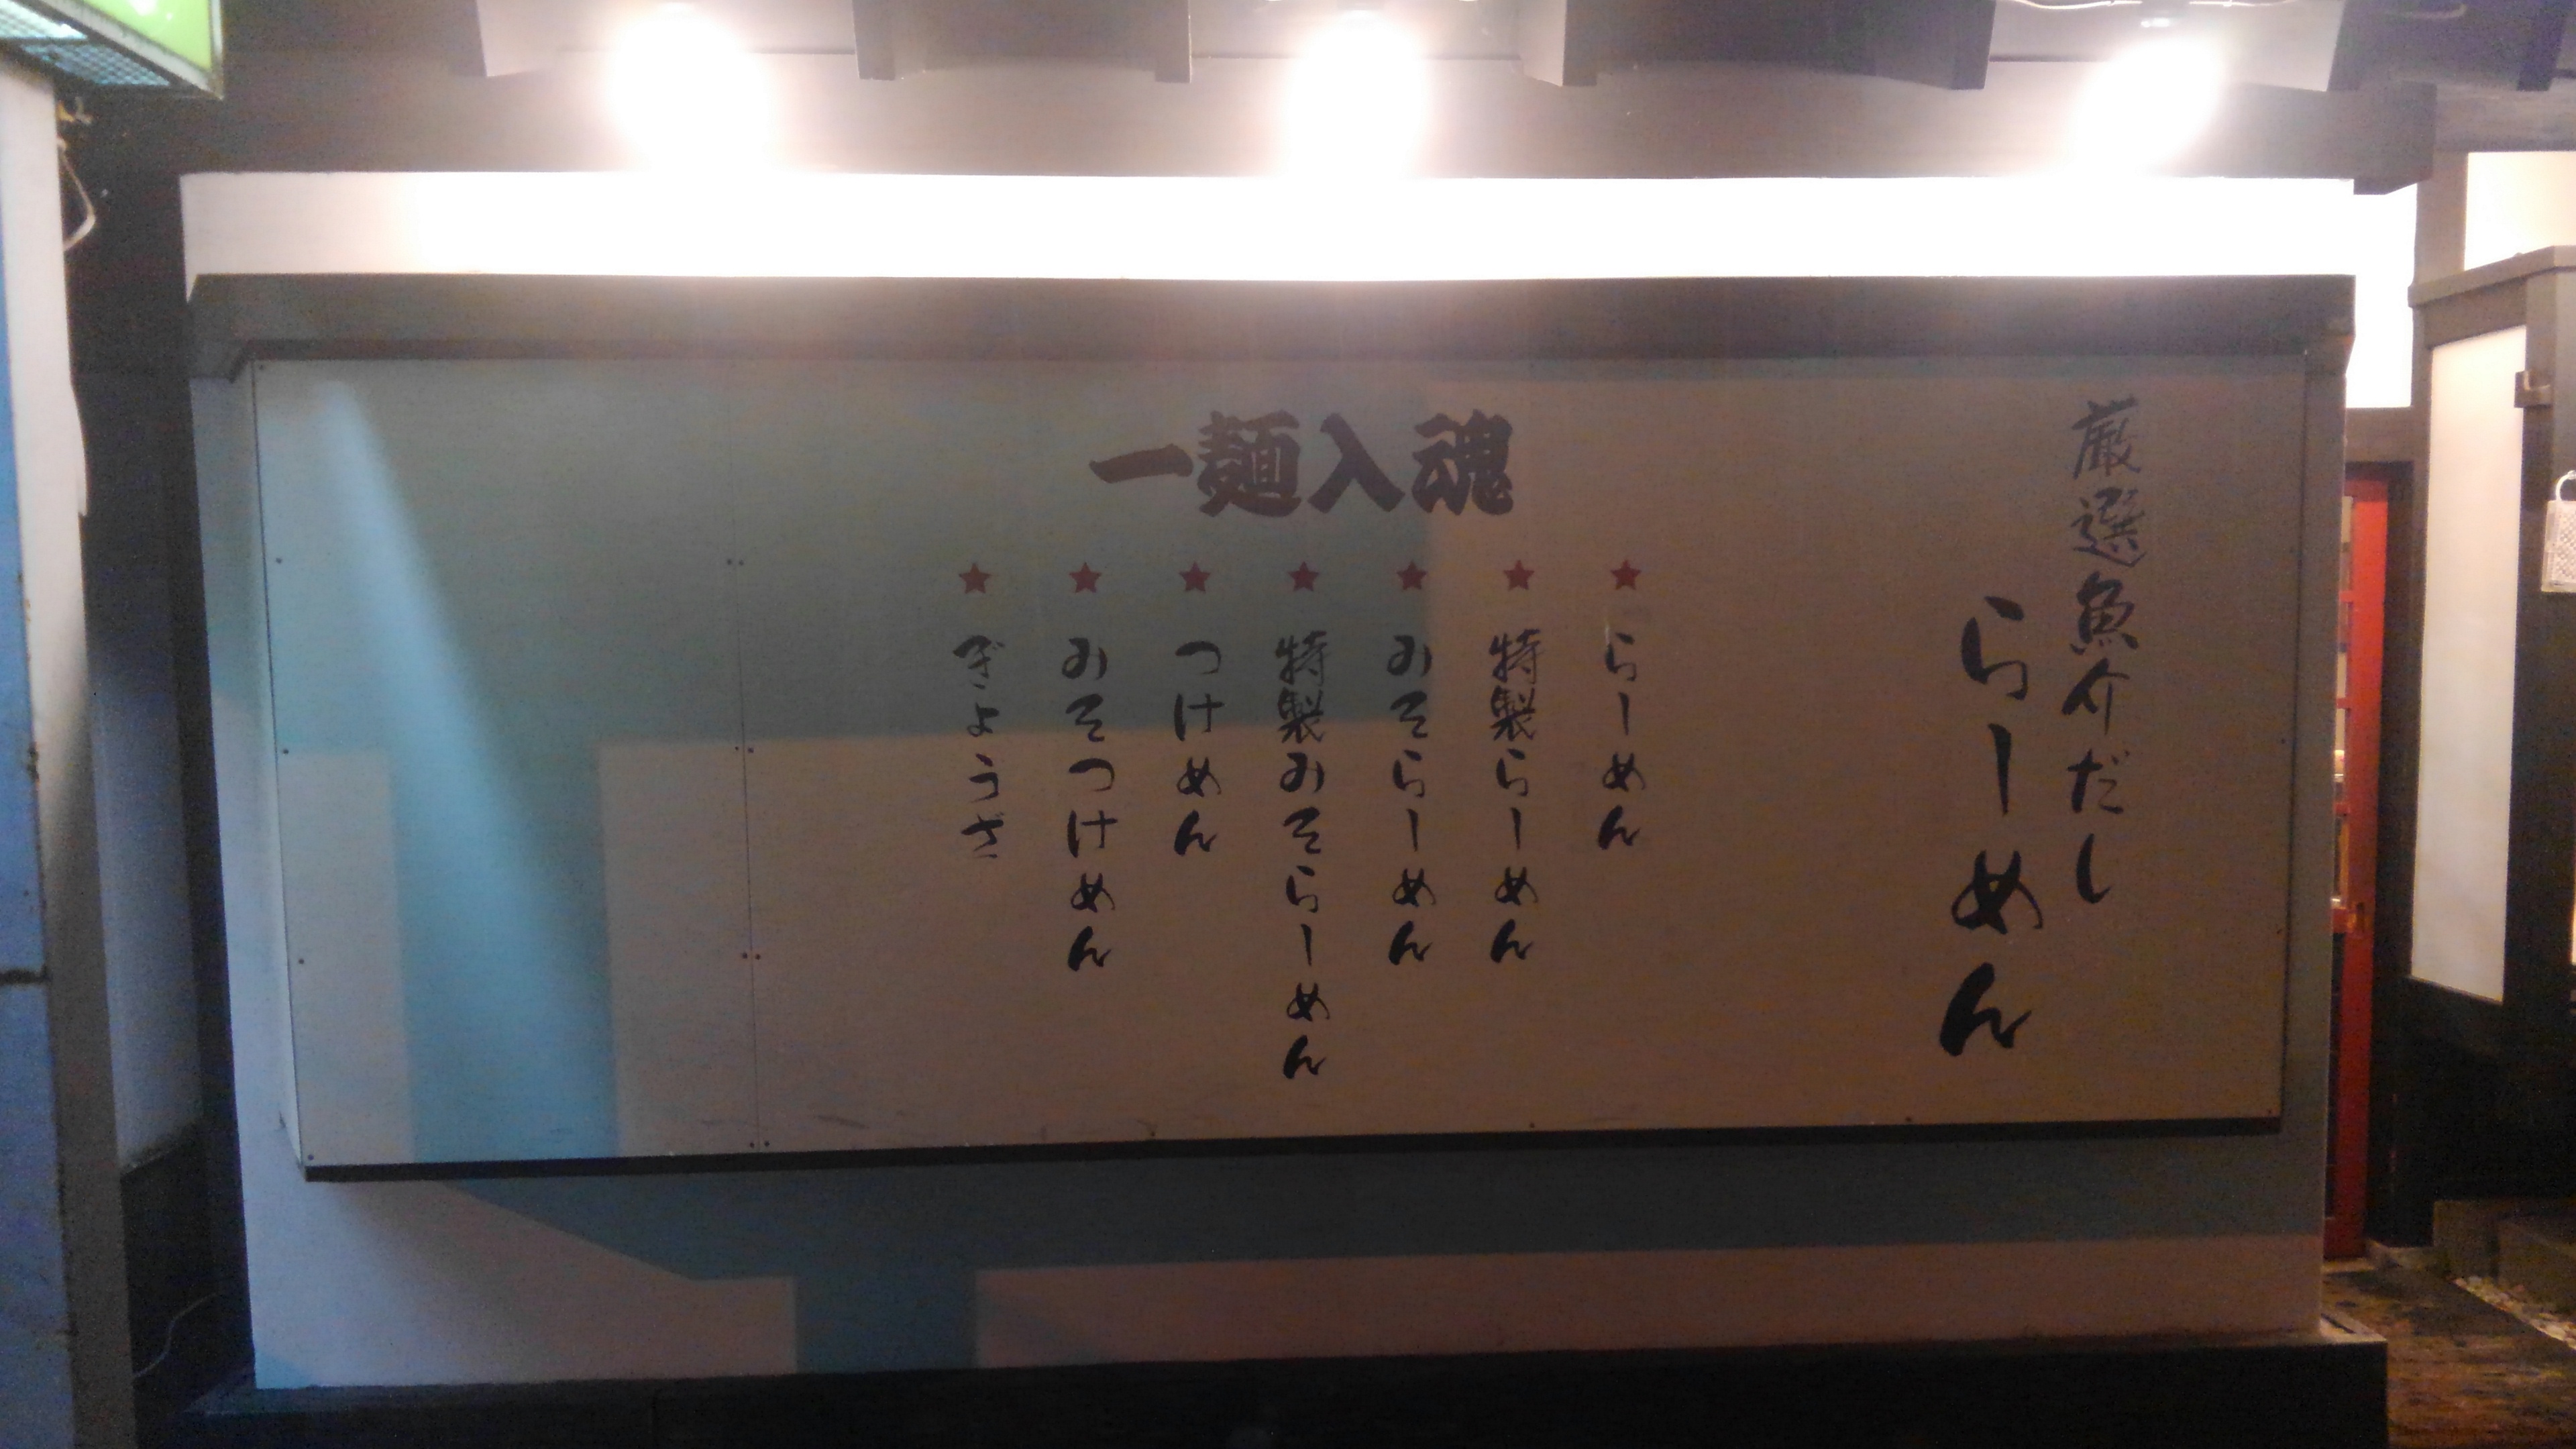 厳選魚介だし
らーめん
一麺入魂
★らーめん
★特製らーめん
★みそらーめん
★特製みそらーめん
★つけめん
★みそつけめん
★ぎょうざ